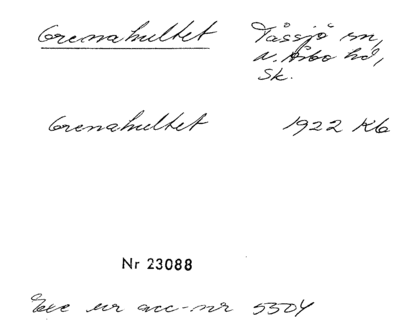 Grenahultet Tåssjö sn,
N. Åsbo hd,
Sk.
Grenahultet 1922 Kb
Nr 23088
Exc ur acc-nr 5504